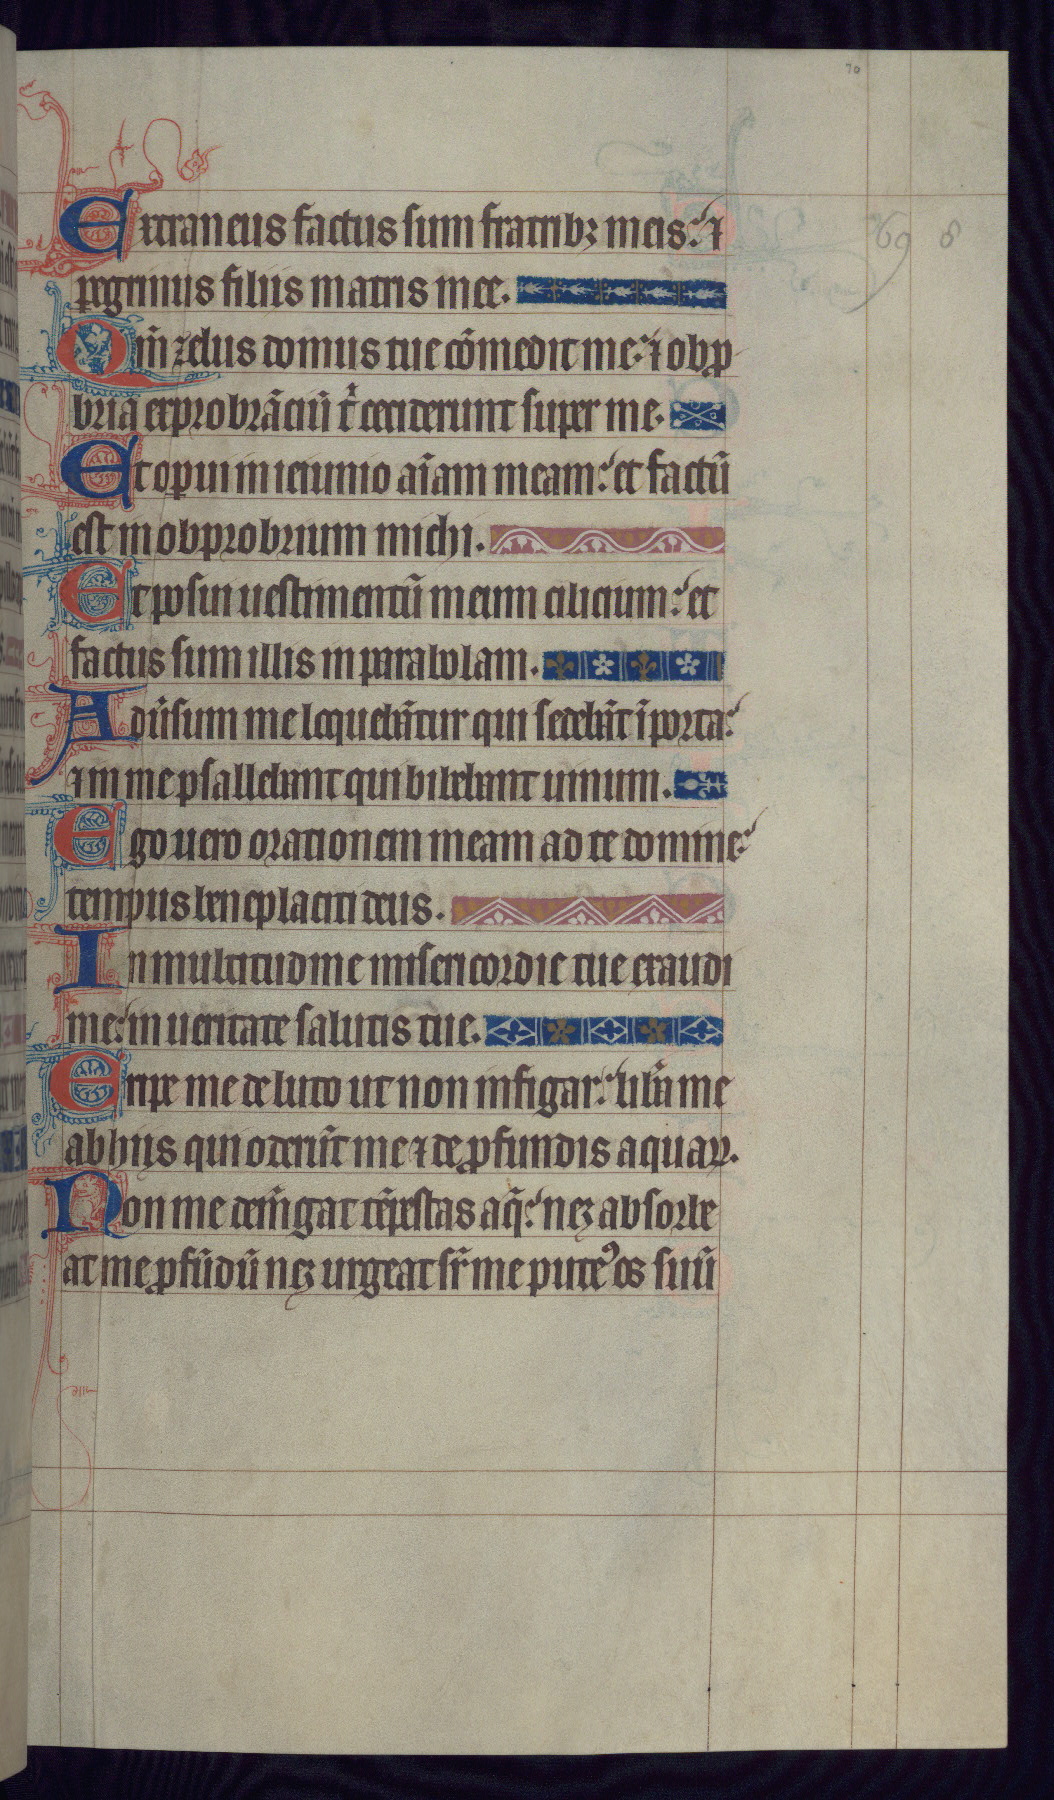 70
69 8
Extraneus factus sum fratribꝫ meis: ⁊
peregrinus filiis matris mee.
Qm̄ zelus domus tue cōmedit me: ⁊ obpro
bria exprobrāciū t̄ ceciderunt super me.
Et operui in ieiunio aīam meam: et factū
est in obprobrium michi.
Et posui uestimentū meum cilicium: et
factus sum illis in parabolam.
Adūsum me loquebātur qui sedebāt ī porta:
⁊ in me psallebant qui bibebant uinum.
Ego uero orationem meam ad te domine:
tempus beneplaciti deus.
In multitudine misericordie tue exaudi
me: in ueritate salutis tue.
Eripe me de luto ut non infigar: libā me
ab hiis qui oderūt me ⁊ de ꝓfundis aquaꝝ.
Non me demgat tēpestas aq̄: neꝫ absorbe
at me ꝓfūdū neꝫ urgeat sr̄ me puteꝰ os suū